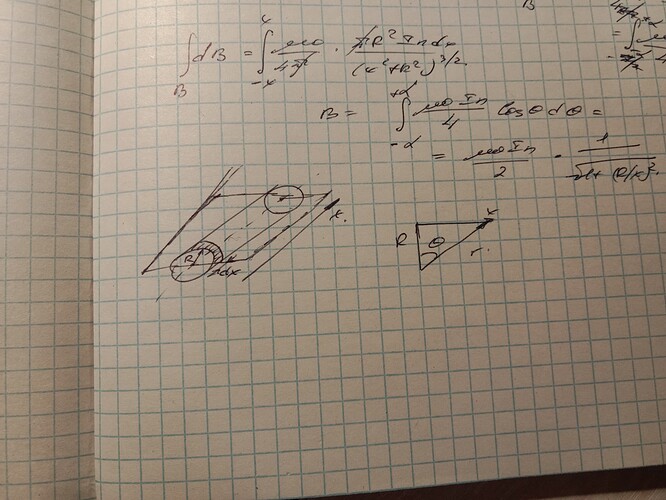 B
∫_B dB = ∫_{-x}^{x} μ0/4π · πR² I n dx / (x²+R²)^{3/2}
B = ∫_{-α}^{+α} μ0 I n / 4 cos θ dθ =
= μ0 I n / 2 · 1 / √(1+(R/x)²).
x.
R
dx
R θ r. x